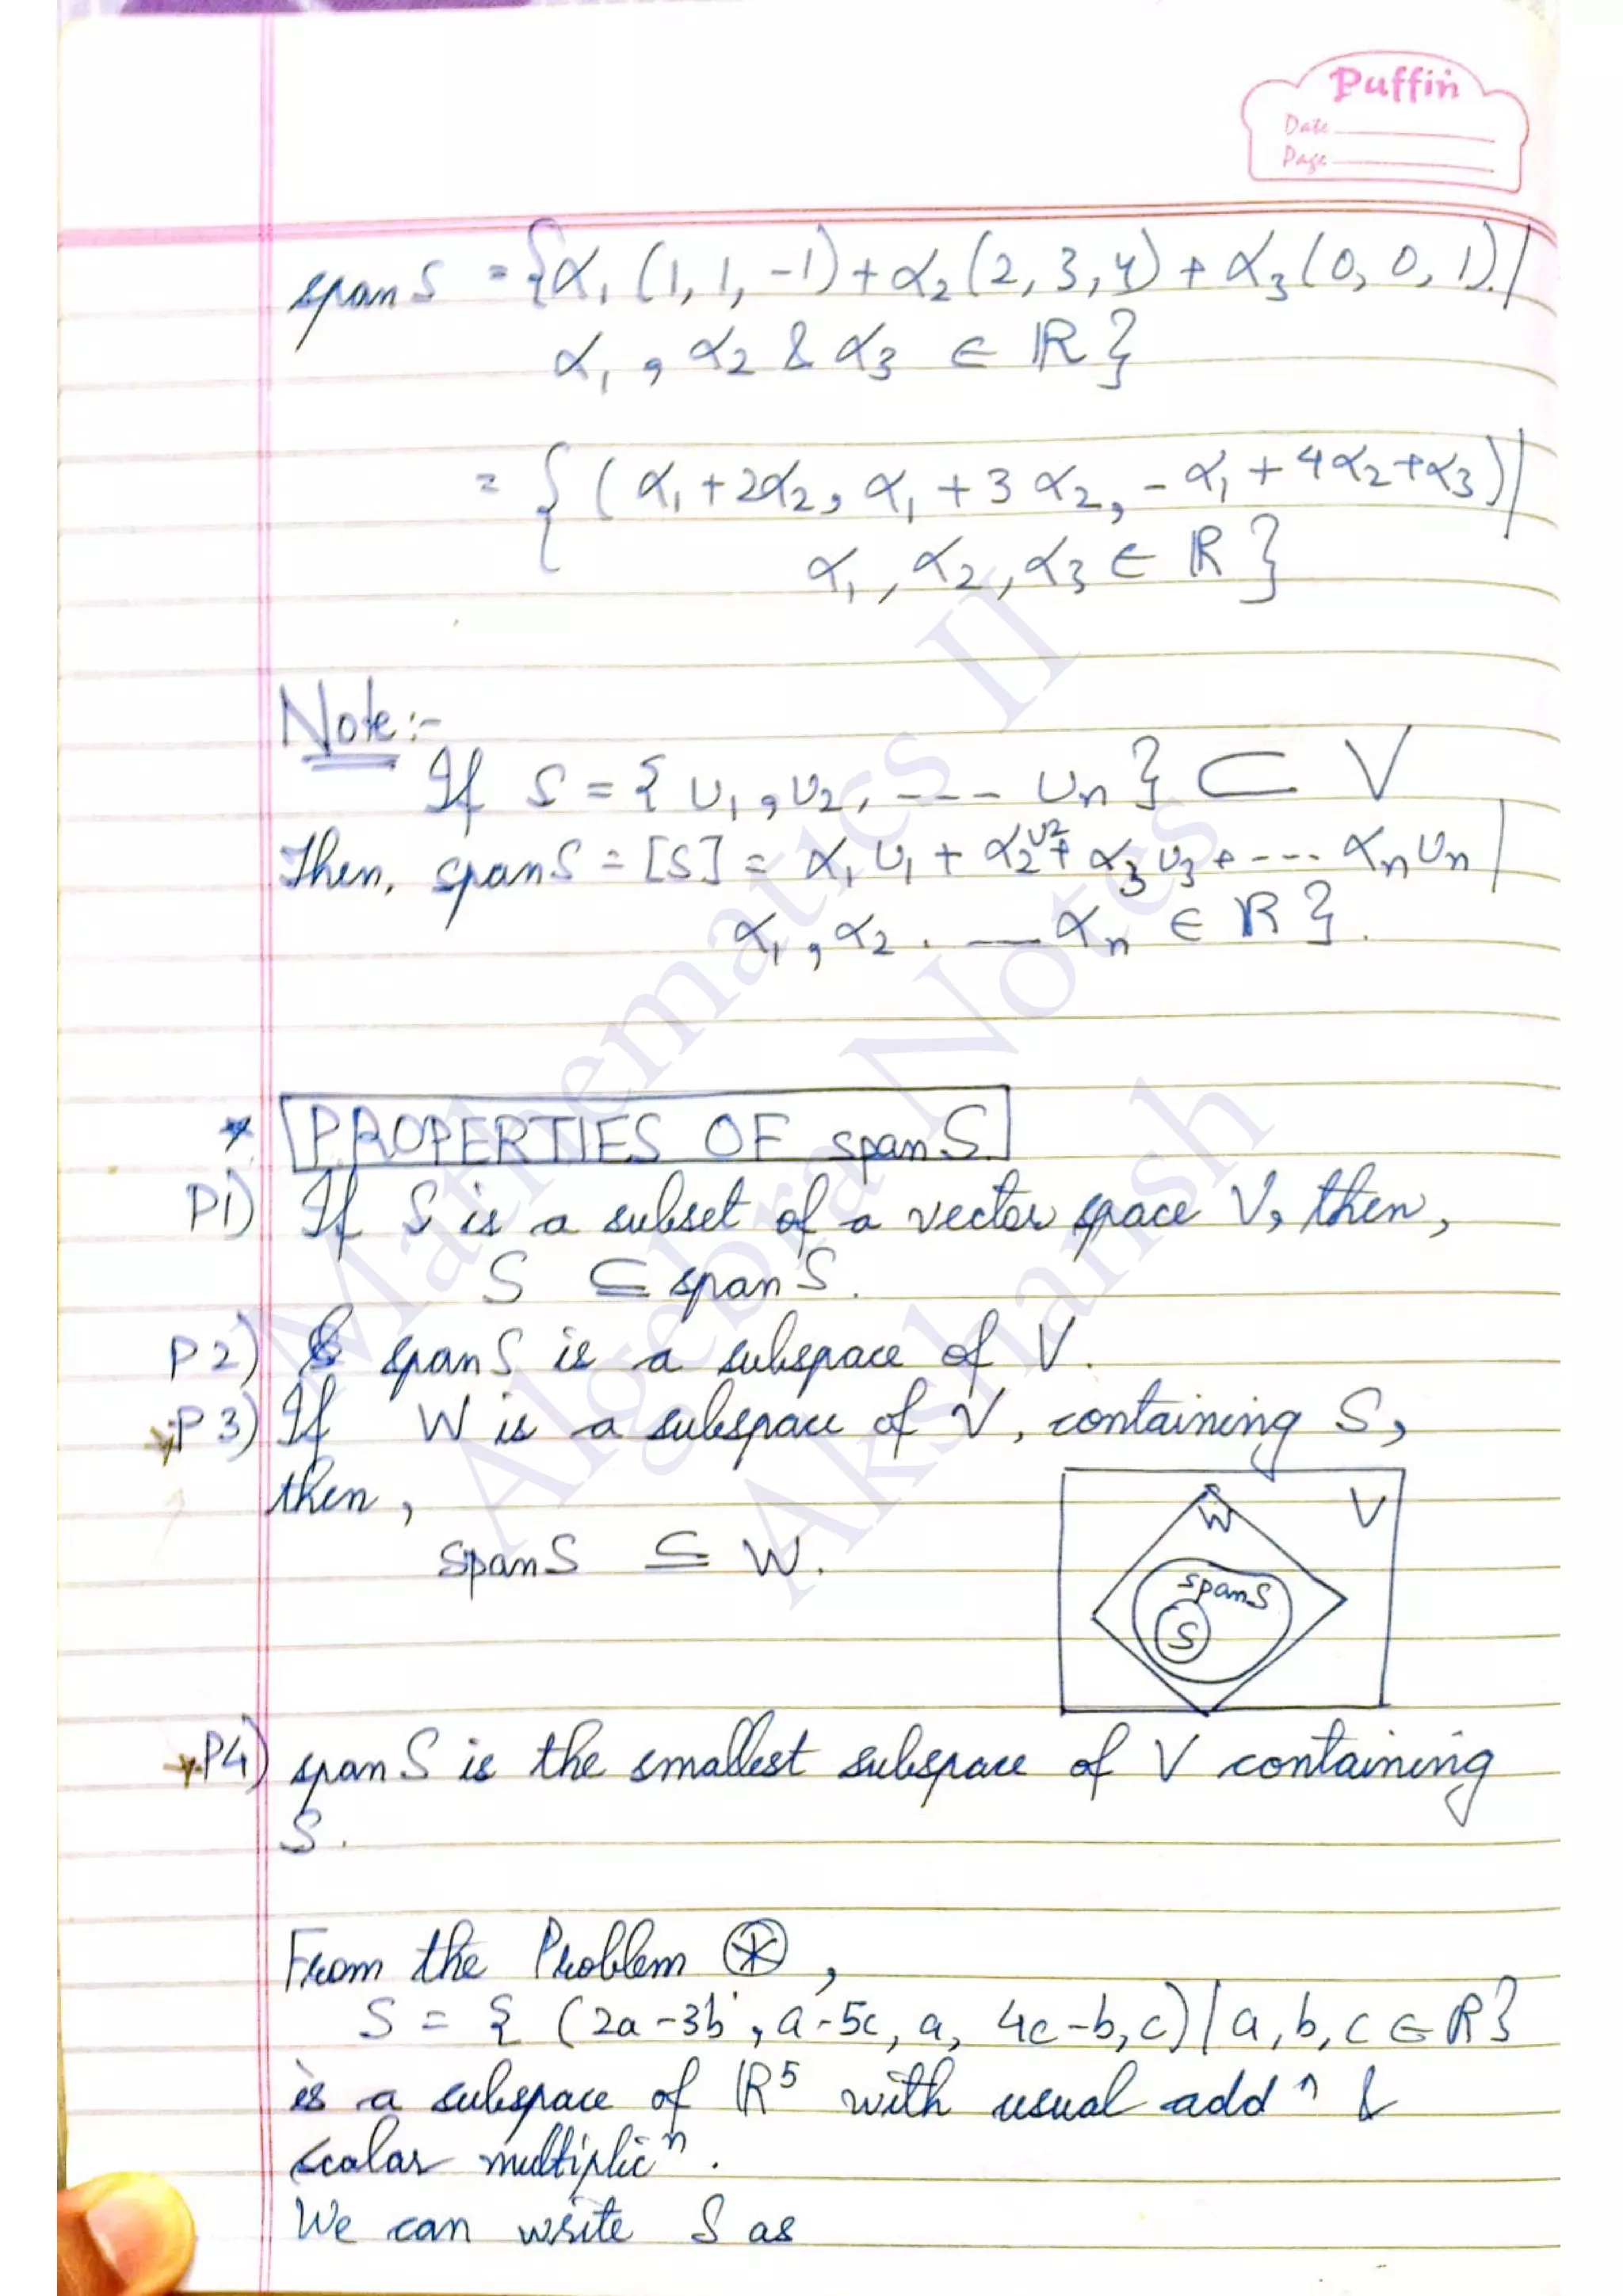 Puffin
Date
Page
span S = {α₁ (1, 1, -1) + α₂ (2, 3, 4) + α₃ (0, 0, 1) |
α₁ , α₂ & α₃ ∈ ℝ }
= { ( α₁ + 2α₂ , α₁ + 3 α₂ , - α₁ + 4α₂ + α₃ ) |
α₁ , α₂ , α₃ ∈ ℝ }
Note:-
If S = { v₁ , v₂ , ---- vₙ } ⊂ V
Then, span S = [S] = α₁ v₁ + α₂ v₂ + α₃ v₃ + ---- αₙ vₙ |
α₁ , α₂ . — αₙ ∈ ℝ } .
* PROPERTIES OF span S.
P1) If S is a subset of a vector space V, then,
S ⊆ span S .
P2) span S is a subspace of V .
P3) If W is a subspace of V , containing S ,
then ,
span S ⊆ W .
W
V
span S
S
P4) span S is the smallest subspace of V containing
S .
From the Problem ⊛ ,
S = { (2a - 3b , a - 5c, a, 4c - b, c) | a, b, c ∈ ℝ }
is a subspace of ℝ⁵ with usual addⁿ &
scalar multiplicⁿ .
We can write S as
Mathematics II
Algebra Notes
Akshansh